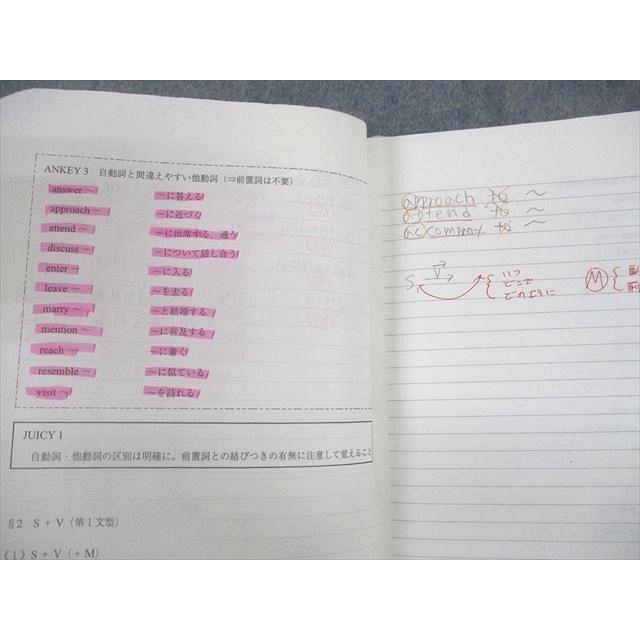 ANKEY 3 自動詞と間違えやすい他動詞（⇒前置詞は不要）
answer ～ ～に答える
approach ～ ～に近づく
attend ～ ～に出席する，通う
discuss ～ ～について話し合う
enter ～ ～に入る
leave ～ ～を去る
marry ～ ～と結婚する
mention ～ ～に言及する
reach ～ ～に着く
resemble ～ ～に似ている
visit ～ ～を訪れる
JUICY 1
自動詞・他動詞の区別は明確に。前置詞との結びつきの有無に注意して覚えること
§2 S + V（第1文型）
《1》S + V (+ M)
approach to ～
attend to ～
accompany to ～
S V
いつ
どこで
どのように
M